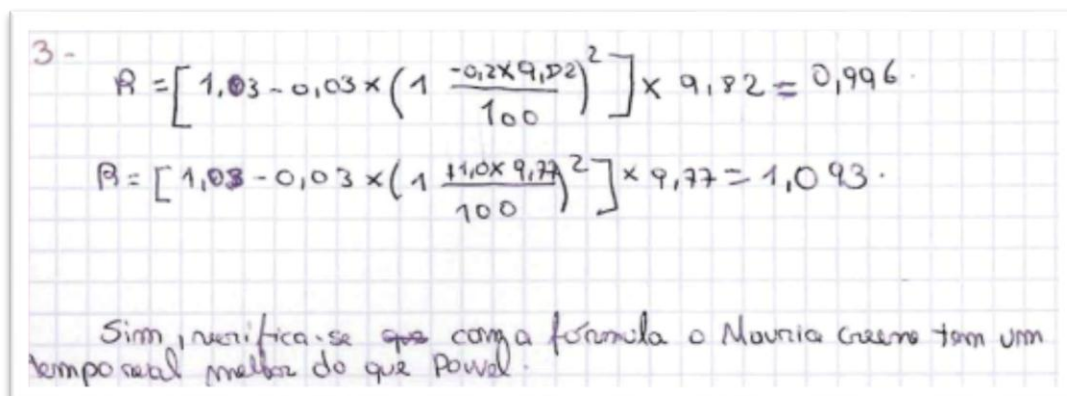 3-
R = [1,03 - 0,03 × (1 \frac{-0,2×9,82}{100})²] × 9,82 = 0,996.
R = [1,03 - 0,03 × (1 \frac{+1,0×9,77}{100})²] × 9,77 = 1,093.
Sim, verifica-se que com a fórmula o Mouria Creene tem um
tempo real melhor do que Powel.